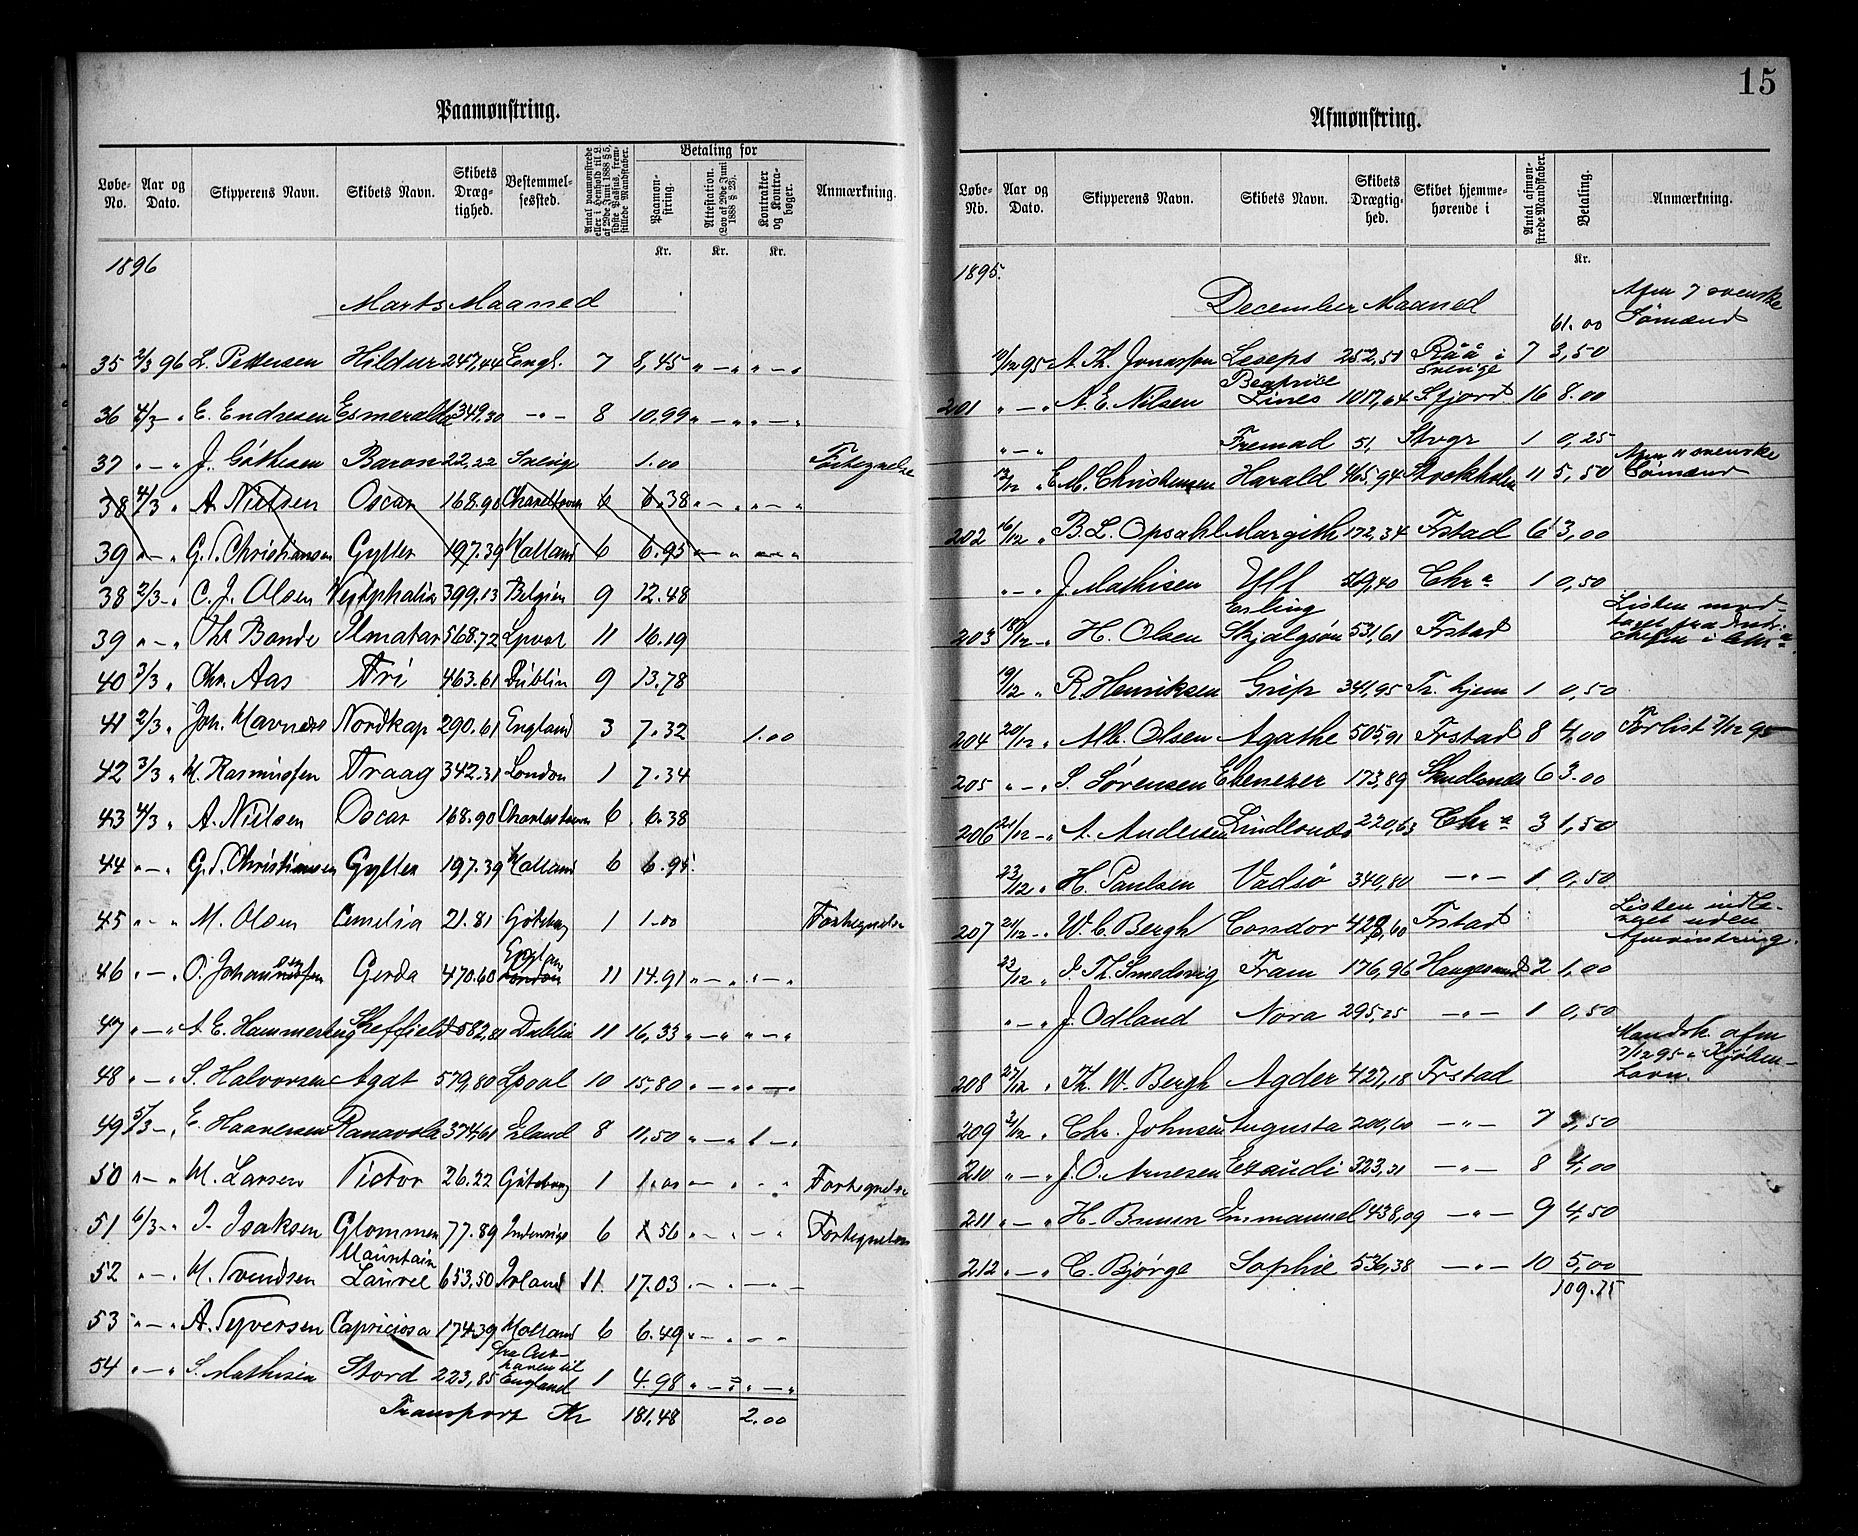 15
Paamønstring.
Løbe-No. Aar og Dato. Skipperens Navn. Skibets Navn. Skibets Drægtighed. Bestemmelsessted. Antal paamønstrede eller i Henhold til L. af 29de Juni 1888 § 5, sidste Passus, fremstillede Mandskaber. Betaling for Paamønstring. Attestation. (Lov af 29de Juni 1888 § 23). Kontrakter og Kontrabøger. Anmærkning.
Kr. Kr. Kr.
1896
Marts Maaned
35 2/3 96 L. Pettersen Hildur 247,44 Engl. 7 8,45 " — " " — "
36 4/3 — " E. Endresen Esmeralda 349.30 — " — 8 10,99 " — " " — "
37 " — " J. Göthesen Baron 22,22 Sverige 1.00 Fortegnelse
38 4/3 " A. Nielsen Oscar 168.90 Charlestown 6 6.38 " — " " — "
39 " — " G. T. Christiansen Gylter 197.39 Holland 6 6.95 " — " " — "
38 2/3 — " C. J. Olsen Westphalia 399,13 Belgien 9 12.48
39 " — " Chr Bonde Ilmatar 568.72 Lpool 11 16.19
40 3/3 " Chr. Aas Fri 463.61 Dublin 9 13.78
41 2/3 " Joh. Havnæs Nordkap 290.61 England 3 7.32 1.00
42 3/3 " M. Rasmussen Traag 342.31 London 1 7.34
43 4/3 " A. Nielsen Oscar 168.90 Charlestown 6 6.38
44 " — " G. T. Christiansen Gylter 197.39 Holland 6 6.95
45 " — " M. Olsen Emelia 21.81 Göteborg 1 1.00 Fortegnelse
46 " — " O. Johannessen Gerda 470.60 London England 11 14.91 " — " " — "
47 " — " A. E. Hammerborg Sheffield 582,81 Dublin 11 16,33 " — " " — "
48 " — " S. Halvorsen Agat 579,80 Lpool 10 15,80 " — " " — "
49 5/3 — " E. Haavelsen Ranavola 374,61 Irland 8 11,50 " — " 1 — "
50 " — " M. Larsen Victor 26.22 Göteborg 1 1.00 — " " — " Fortegnelse
51 6/3 — " J. Isaksen Glommen 77.89 Indenrigs 6 1 56 " — " " — " Fortegnelse
52 " — " M. Svendsen Mountain Laurel 653,50 Irland 11. 17.03 " — " " — "
53 " — " A. Syversen Capriciosa 174.39 Holland 6 6.49 " — " " — "
54 " — " S. Mathisen Stord 223,85 fra Cuxhaven til England 1 4.98 " — " " — "
Transport Kr 181,48 2.00
Afmønstring.
Løbe-No. Aar og Dato. Skipperens Navn. Skibets Navn. Skibets Drægtighed. Skibet hjemmehørende i Antal afmønstrede Mandskaber. Betaling. Anmærkning.
Kr.
1895.
December Maaned 61.00 Afm 7 svenske Sømænd
10/12 95 A. Th. Jonasson Leseps 252,51 Råå i Sverige 7 3,50
201 " — " A. E. Nilsen Beatrice Lines 1017,64 S.fjord 16 8.00
" — " Fremad 51, Stvgr 1 0,25
12/12 " E. M. Christensen Harald 465.94 Stockholm 11 5,50 Afm 11 svenske Sømænd
202 16/12 " B. L. Opsahl Margith 172,34 Frstad 6 3,00
" — " J. Mathisen Ulf 769,40 Chr a 1 0,50
203 18/12 — " H. Olsen Erling Skjalgsøn 531,61 Frstad Listen modtaget fra Indr.chefen i Chr a.
19/12 " R. Henriksen Grip 341,95 Tr. hjem 1 0,50
204 20/12 " Alb. Olsen Agathe 505,91 Frstad 8 4,00 Forlist 7/12 95
205 " — " S. Sørensen Ebenezer 173,89 Skudesnæs 6 3.00
206 21/12 — " A. Andersen Lindesnæs 220,63 Chr a 3 1,50
23/12 " H. Paulsen Vadsø 340,80 — " — 1 0,50
207 21/12 — " W. C. Bergh Condor 428,60 Frstad Listen indleveret uden Afmønstring.
23/12 " J. Th. Smedsvig Fram 176,96 Haugesund 2 1,00
" — " J. Odland Nora 295,25 — " — 1 0,50
208 27/12 " Th. W. Bergh Agder 427,18 Frstad Mandsk. afm 7/12 95 i Kjøbenhavn.
209 31/12 " Chr. Johnsen Augusta 200,60 — " — 7 3,50
210 " — " J. O. Arnesen Exaudi 323,31 — " — 8 4,00
211 " — " H. Bruun Immanuel 438,09 — " — 9 4,50
212 " — " C. Bjørge Sophie 536,38 — " — 10 5,00
109.75